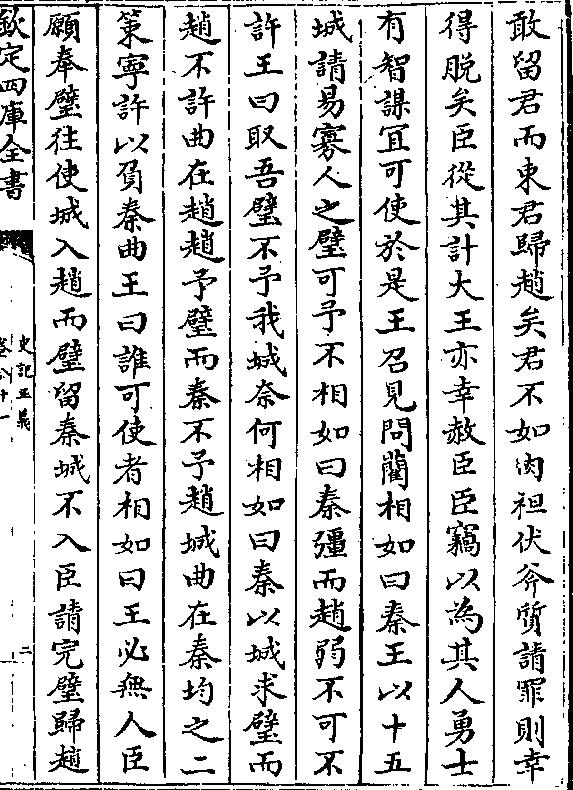 敢留君而束君歸趙矣君不如肉袒伏斧質請罪則幸
得脫矣臣從其計大王亦幸赦臣臣竊以為其人勇士
有智謀宜可使於是王召見問藺相如曰秦王以十五
城請易寡人之璧可予不相如曰秦彊而趙弱不可不
許王曰取吾璧不予我城奈何相如曰秦以城求璧而
趙不許曲在趙趙予璧而秦不予趙城曲在秦均之二
策寧許以負秦曲王曰誰可使者相如曰王必無人臣
願奉璧往使城入趙而璧留秦城不入臣請完璧歸趙
欽定四庫全書
史記正義
二